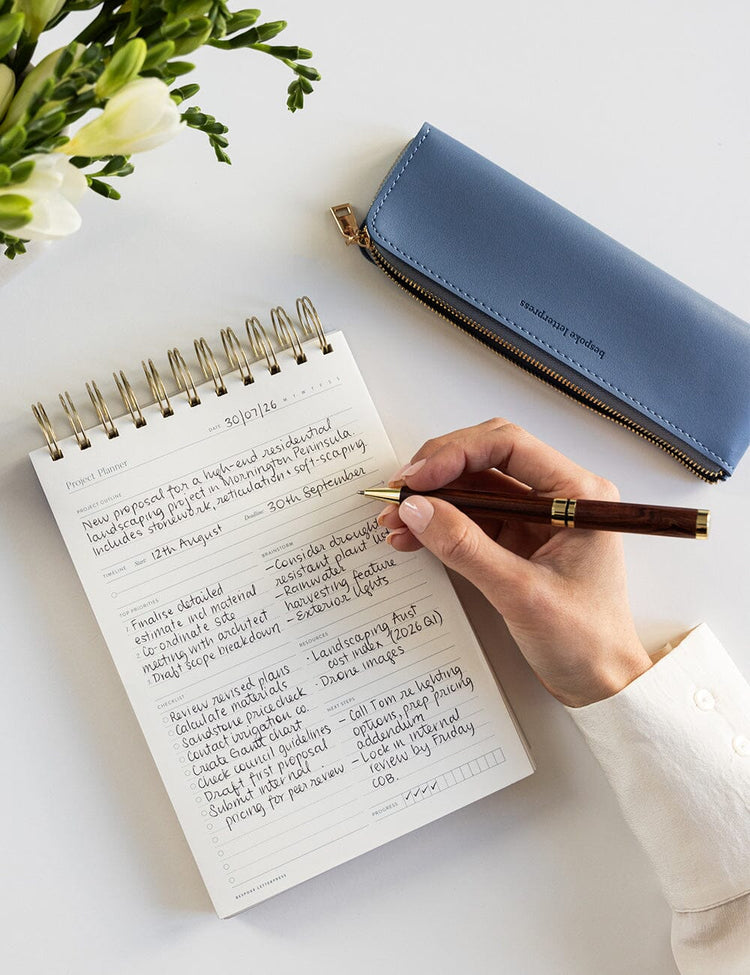 bespoke letterpress
DATE 30/07/26 M T W T F S S
Project Planner
PROJECT OUTLINE
New proposal for a high-end residential
landscaping project in Mornington Peninsula.
Includes stonework, reticulation + soft-scaping.
TIMELINE Start: 12th August Deadline: 30th September
TOP PRIORITIES
1. Finalise detailed
estimate incl material
2. Co-ordinate site
meeting with architect
3. Draft scope breakdown
BRAINSTORM
- Consider drought
resistant plant list
- Rainwater
harvesting feature
- Exterior lights
RESOURCES
· Landscaping Aust
cost index (2026 Q1)
· Drone images
CHECKLIST
Review revised plans
Calculate materials
Sandstone price check
Contact irrigation co.
Create Gantt chart
Check council guidelines
Draft first proposal
Submit internal
pricing for peer review
NEXT STEPS
- Call Tom re lighting
options, prep pricing
addendum
- Lock in internal
review by Friday
COB.
PROGRESS ✓ ✓ ✓ ✓
BESPOKE LETTERPRESS